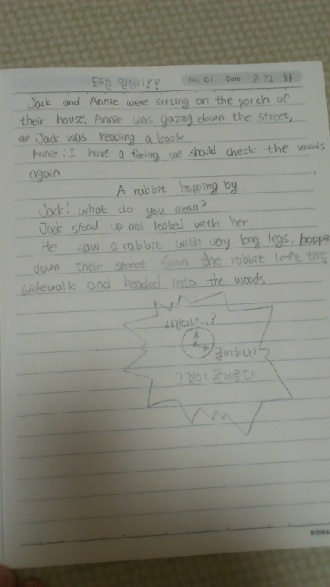 모두는 열심히!!
No. 01 Date 3. 12 화
Jack and Annie were sitting on the porch of
their house, Annie was gazing down the street,
ar Jack was reading a book
Annie: I have a feeling we should check the woods
again
A rabbit hopping by
Jack: what do you mean?
Jack stand up and looked with her
He saw a rabbit with very long legs. hoppi
down their street Soon the rabbit left the
sidewalk and headed into the woods